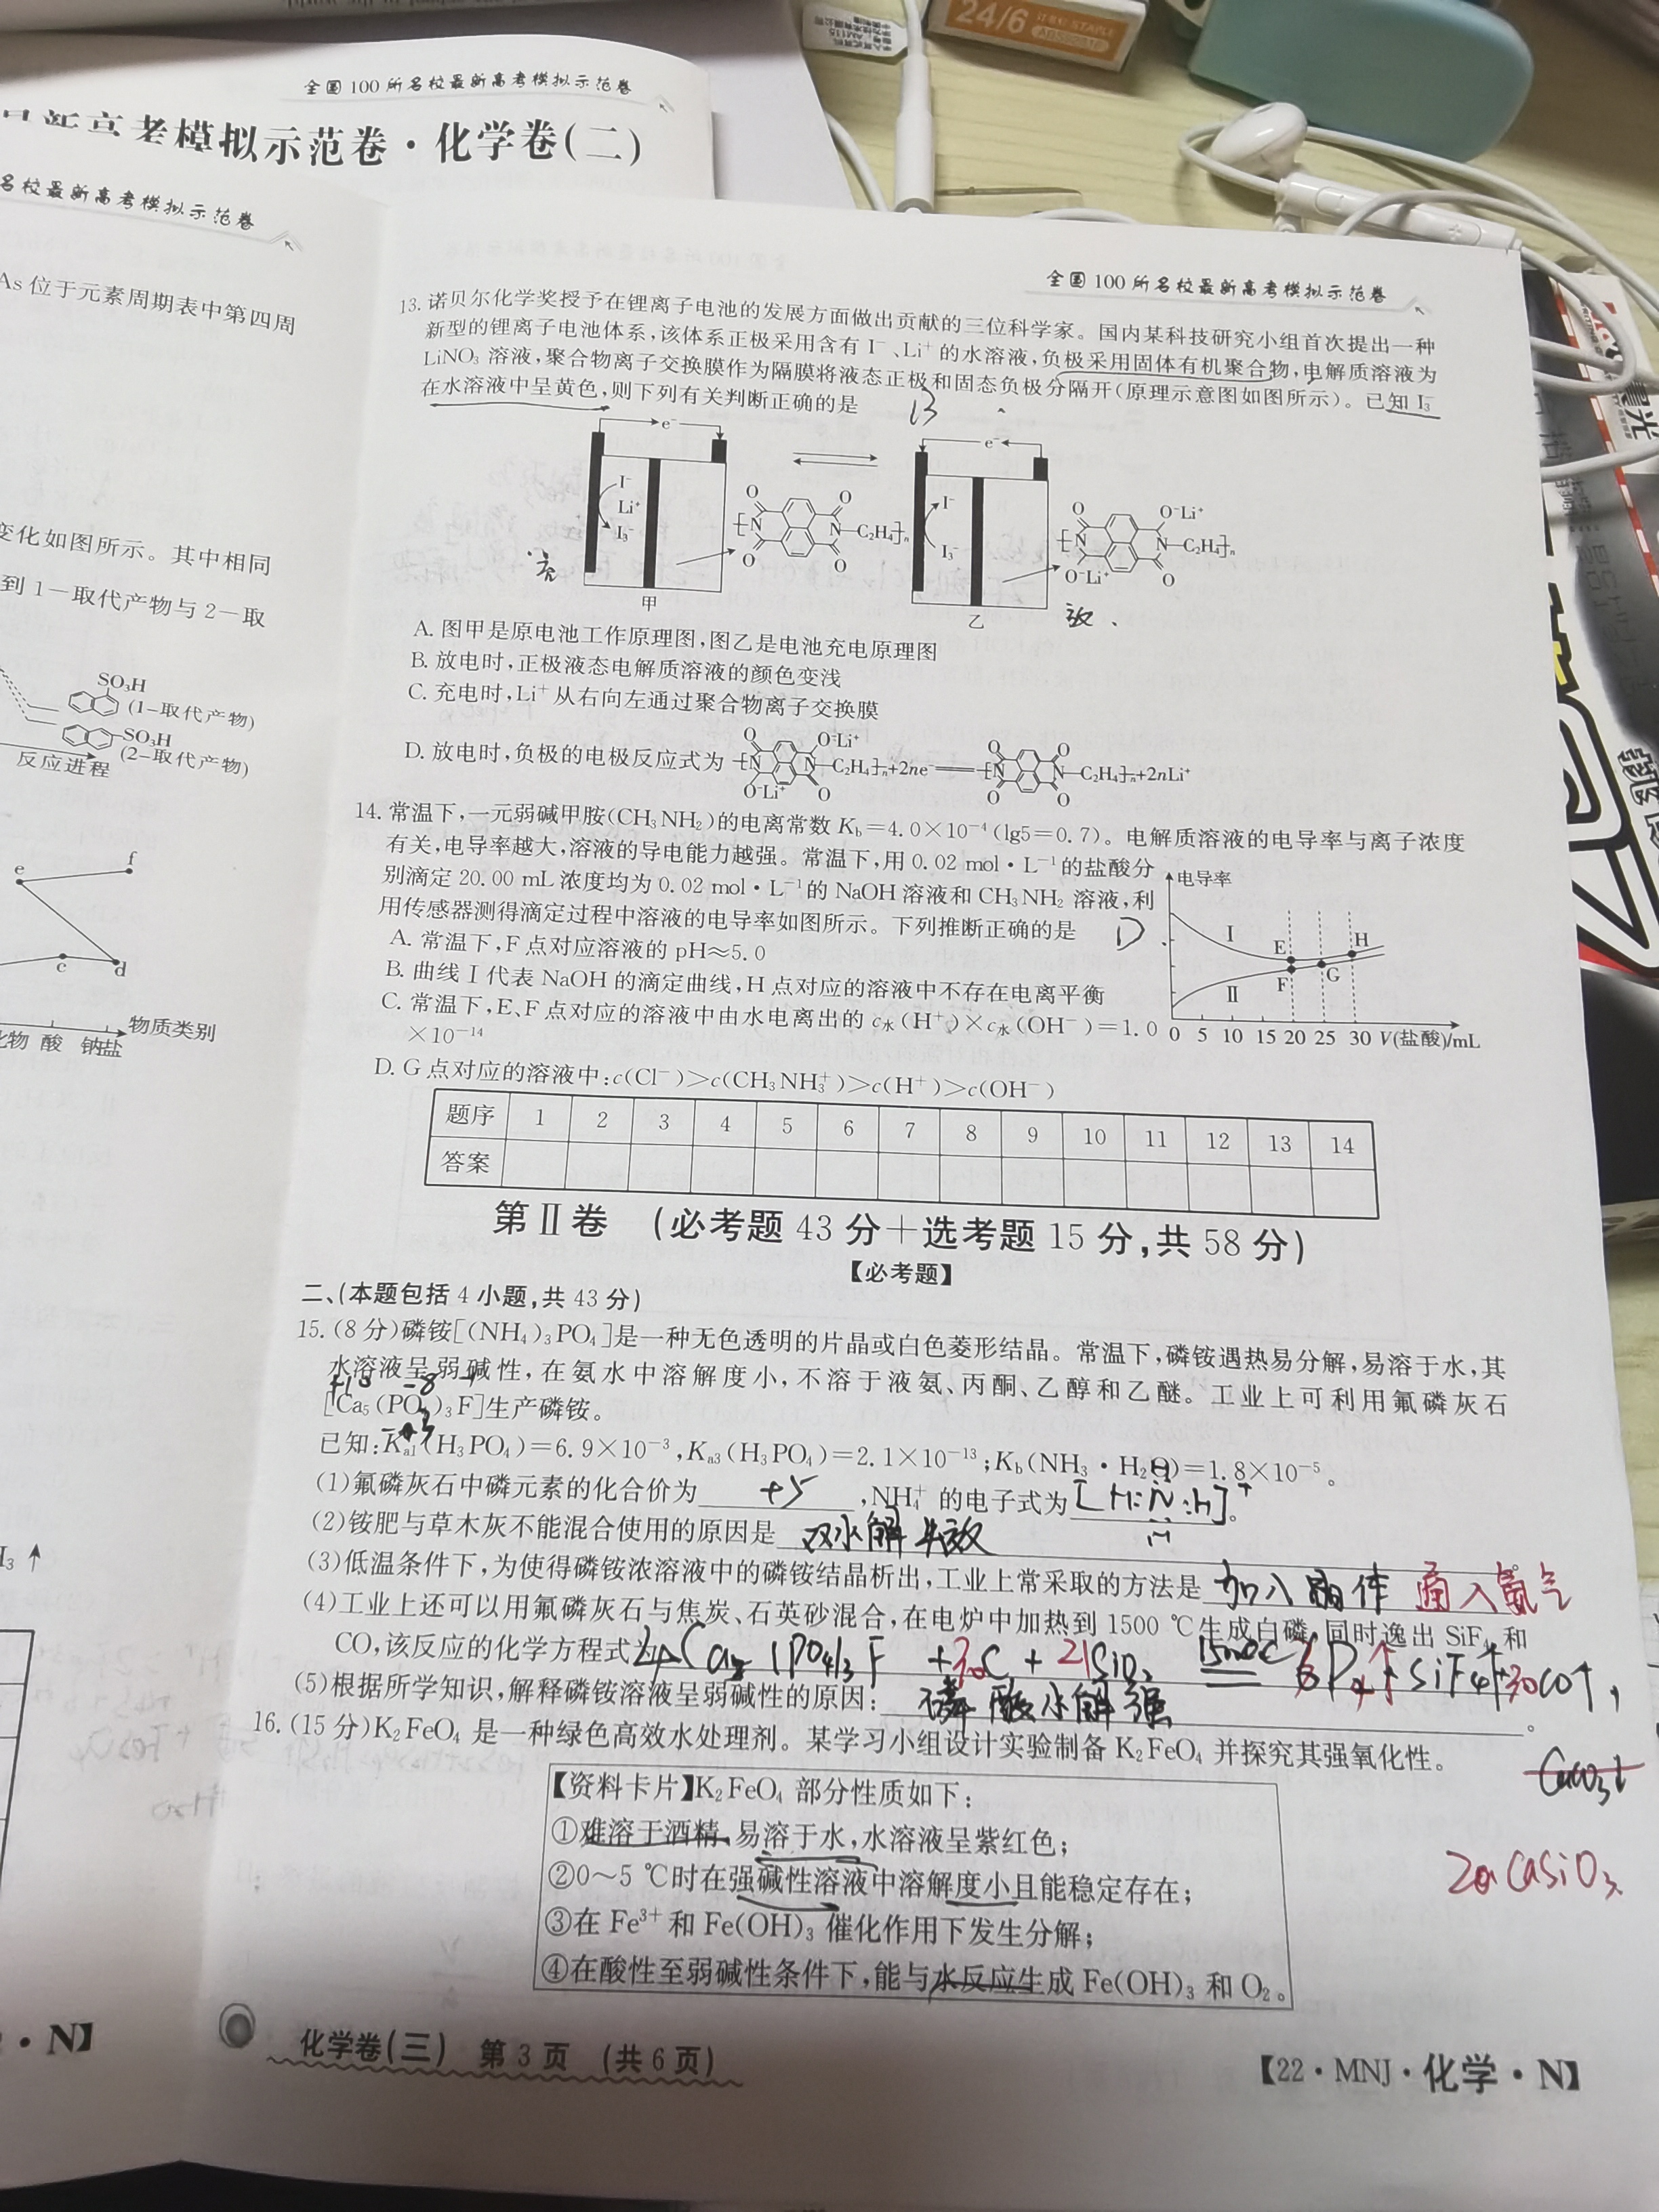 24/6
全国100所名校最新高考模拟示范卷
高考模拟示范卷·化学卷(二)
名校最新高考模拟示范卷
As 位于元素周期表中第四周
变化如图所示。其中相同
到1-取代产物与2-取
SO₃H
(1-取代产物)
SO₃H
(2-取代产物)
反应进程
e
f
c
d
化物 酸 钠盐
物质类别
全国100所名校最新高考模拟示范卷
13. 诺贝尔化学奖授予在锂离子电池的发展方面做出贡献的三位科学家。国内某科技研究小组首次提出一种
新型的锂离子电池体系,该体系正极采用含有 I⁻、Li⁺ 的水溶液,负极采用固体有机聚合物,电解质溶液为
LiNO₃ 溶液,聚合物离子交换膜作为隔膜将液态正极和固态负极分隔开(原理示意图如图所示)。已知 I₃⁻
在水溶液中呈黄色,则下列有关判断正确的是 B
e⁻
I⁻
Li⁺
I₃⁻
O O
N N—C₂H₄]ₙ
O O
甲
充
e⁻
I⁻
I₃⁻
O O⁻Li⁺
N N—C₂H₄]ₙ
O⁻Li⁺ O
乙
放
A. 图甲是原电池工作原理图,图乙是电池充电原理图
B. 放电时,正极液态电解质溶液的颜色变浅
C. 充电时,Li⁺ 从右向左通过聚合物离子交换膜
O O⁻Li⁺ O O
D. 放电时,负极的电极反应式为 [N N—C₂H₄]ₙ+2ne⁻══[N N—C₂H₄]ₙ+2nLi⁺
O⁻Li⁺ O O O
14. 常温下,一元弱碱甲胺(CH₃NH₂)的电离常数 K_b=4.0×10⁻⁴(lg5=0.7)。电解质溶液的电导率与离子浓度
有关,电导率越大,溶液的导电能力越强。常温下,用 0.02 mol·L⁻¹ 的盐酸分
别滴定 20.00 mL 浓度均为 0.02 mol·L⁻¹ 的 NaOH 溶液和 CH₃NH₂ 溶液,利
用传感器测得滴定过程中溶液的电导率如图所示。下列推断正确的是 D
A. 常温下,F 点对应溶液的 pH≈5.0
B. 曲线Ⅰ代表 NaOH 的滴定曲线,H 点对应的溶液中不存在电离平衡
C. 常温下,E、F 点对应的溶液中由水电离出的 c水(H⁺)×c水(OH⁻)=1.0
×10⁻¹⁴
D. G 点对应的溶液中:c(Cl⁻)>c(CH₃NH₃⁺)>c(H⁺)>c(OH⁻)
电导率
Ⅰ
E
H
Ⅱ
F
G
0 5 10 15 20 25 30 V(盐酸)/mL
题序 1 2 3 4 5 6 7 8 9 10 11 12 13 14
答案
第Ⅱ卷 (必考题 43 分+选考题 15 分,共 58 分)
【必考题】
二、(本题包括 4 小题,共 43 分)
15. (8 分)磷铵[(NH₄)₃PO₄]是一种无色透明的片晶或白色菱形结晶。常温下,磷铵遇热易分解,易溶于水,其
水溶液呈弱碱性,在氨水中溶解度小,不溶于液氨、丙酮、乙醇和乙醚。工业上可利用氟磷灰石
[Ca₅(PO₄)₃F]生产磷铵。
已知:K_a1(H₃PO₄)=6.9×10⁻³,K_a3(H₃PO₄)=2.1×10⁻¹³;K_b(NH₃·H₂O)=1.8×10⁻⁵。
(1)氟磷灰石中磷元素的化合价为 +5 ,NH₄⁺ 的电子式为 [H:N:H]⁺ 。
(2)铵肥与草木灰不能混合使用的原因是 双水解失效
(3)低温条件下,为使得磷铵浓溶液中的磷铵结晶析出,工业上常采取的方法是 加入晶体 通入氨气
(4)工业上还可以用氟磷灰石与焦炭、石英砂混合,在电炉中加热到 1500 ℃生成白磷,同时逸出 SiF₄ 和
CO,该反应的化学方程式为 4Ca₅(PO₄)₃F +30C + 21SiO₂ 1500℃ ══ 3P₄↑+SiF₄↑+30CO↑,
(5)根据所学知识,解释磷铵溶液呈弱碱性的原因: 磷酸水解强 。
CaCO₃↓
20CaSiO₃
16. (15 分)K₂FeO₄ 是一种绿色高效水处理剂。某学习小组设计实验制备 K₂FeO₄ 并探究其强氧化性。
【资料卡片】K₂FeO₄ 部分性质如下:
①难溶于酒精、易溶于水,水溶液呈紫红色;
②0~5 ℃时在强碱性溶液中溶解度小且能稳定存在;
③在 Fe³⁺ 和 Fe(OH)₃ 催化作用下发生分解;
④在酸性至弱碱性条件下,能与水反应生成 Fe(OH)₃ 和 O₂。
·N】
化学卷(三) 第 3 页 (共 6 页)
【22·MNJ·化学·N】